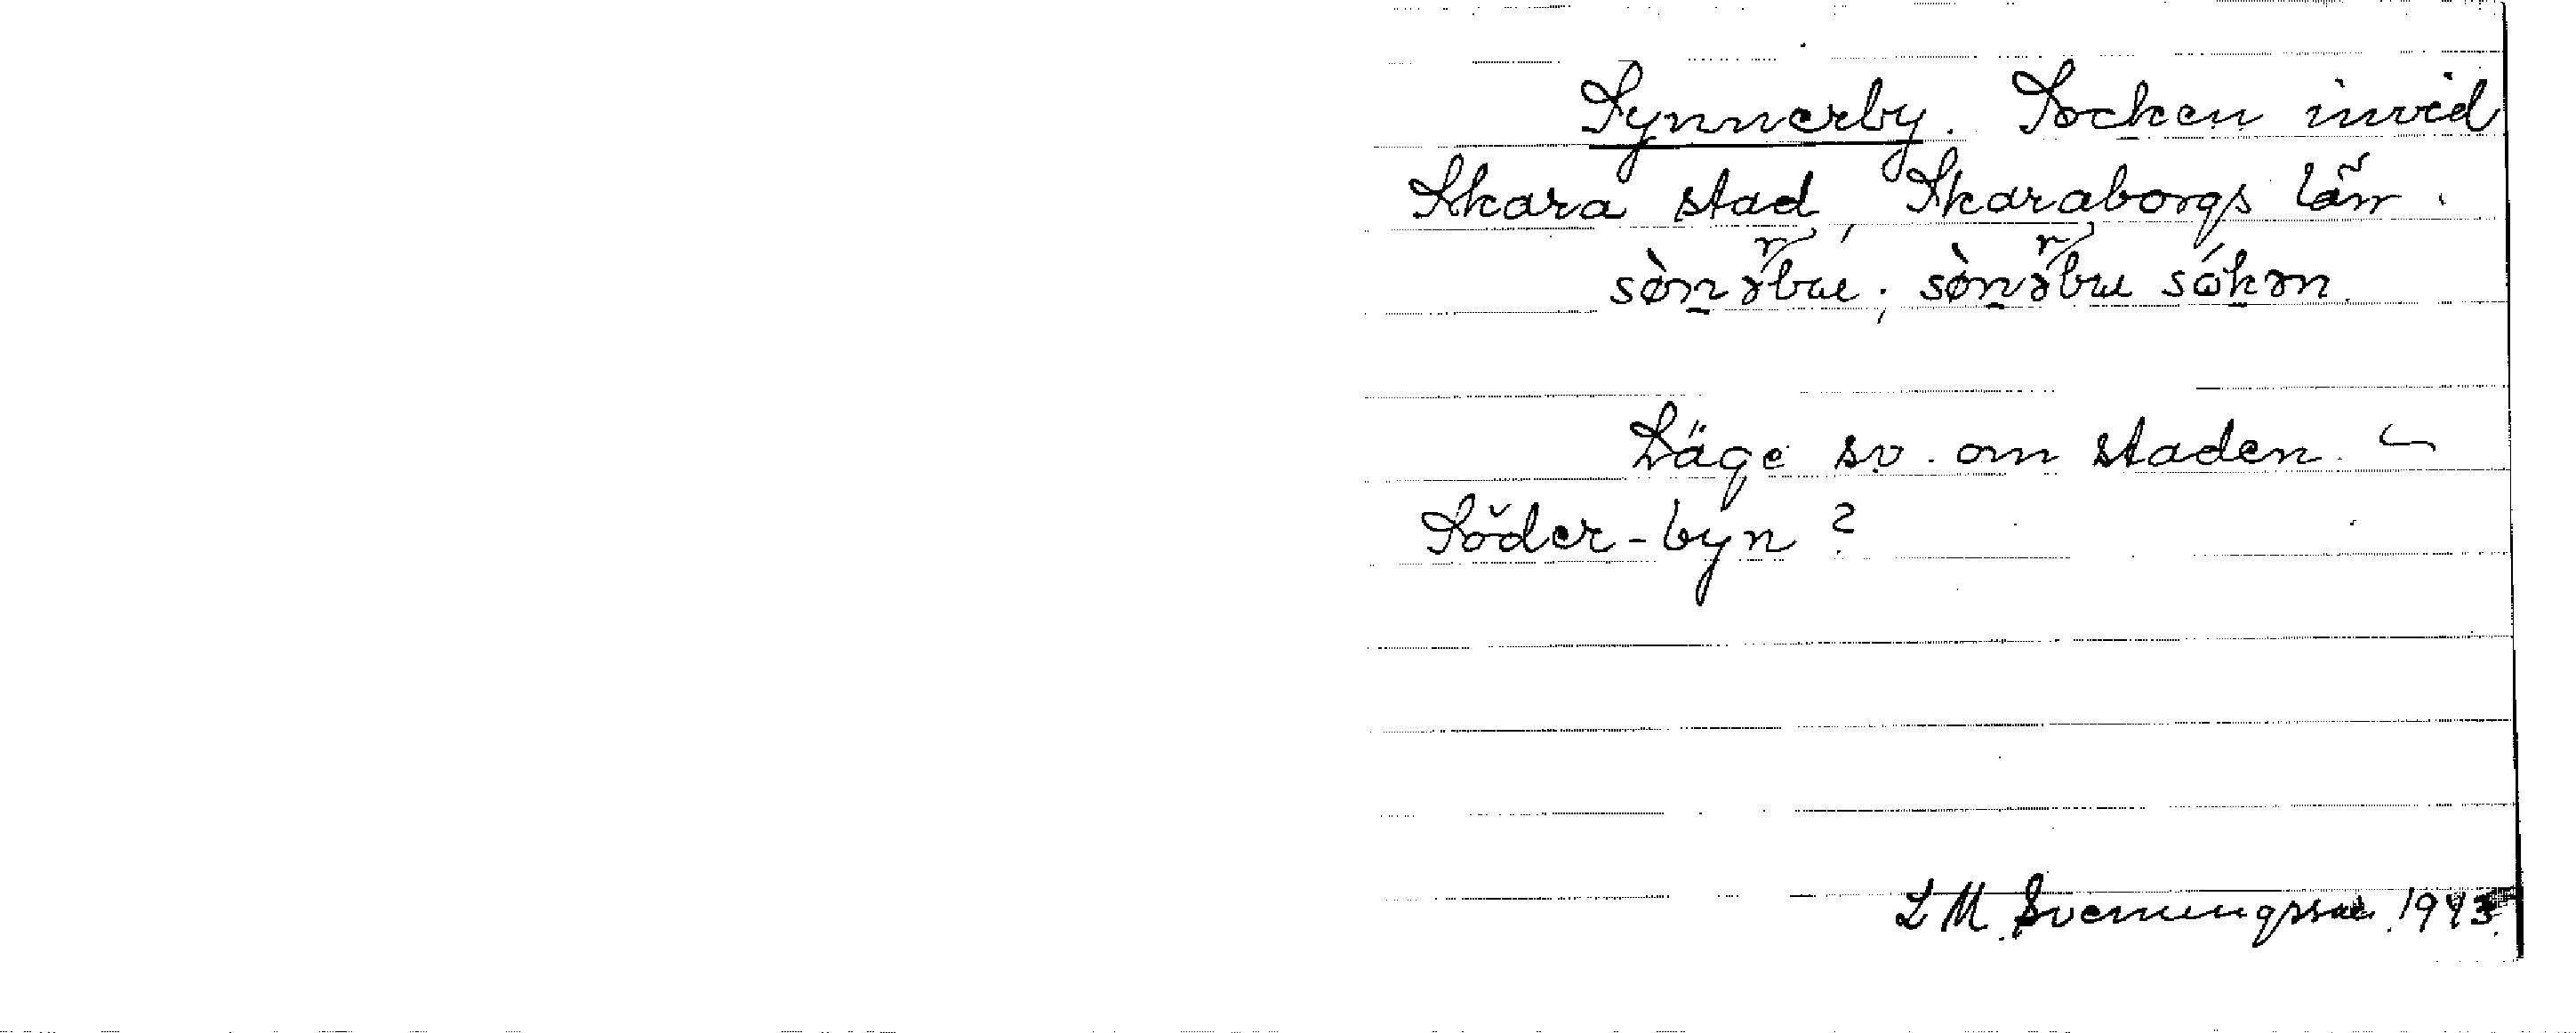 Synnerby. Socken invid
Skara stad, Skaraborgs län.
Läge sv. om staden. –
Söder-byn?
L M Svenungsson 1943